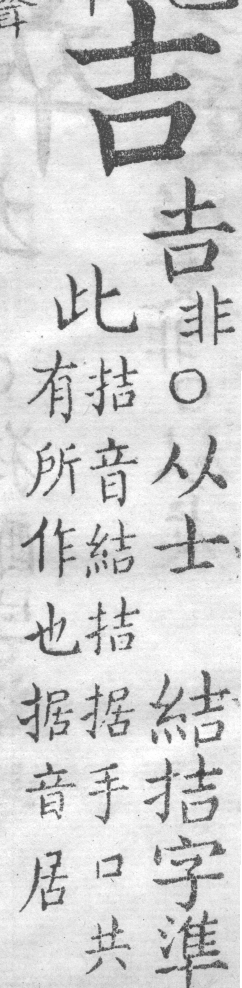 吉
𠮷非○从士 結拮字準
此
拮音結拮据手口共
有所作也据音居